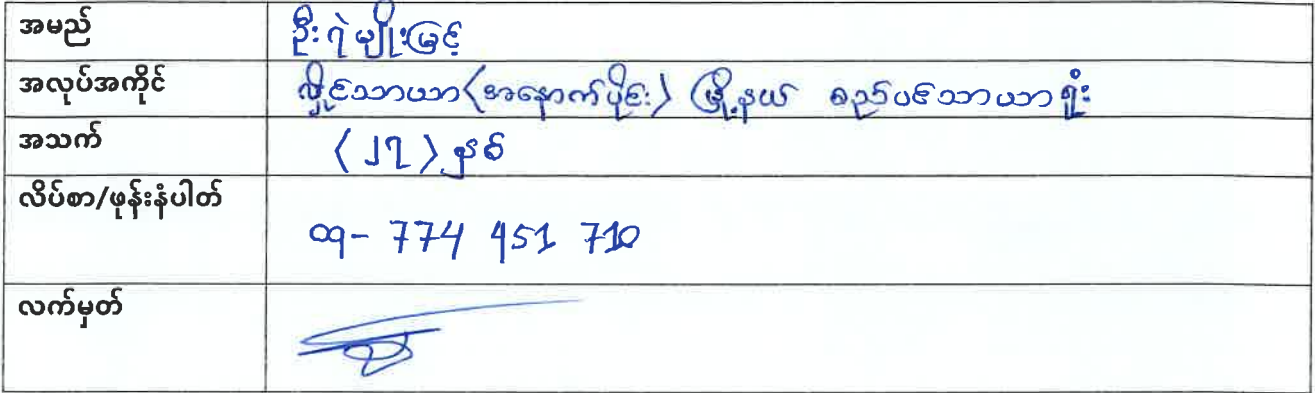 အမည် ဦးရဲမျိုးမြင့်
အလုပ်အကိုင် လှိုင်သာယာ(အနောက်ပိုင်း) မြို့နယ် စည်ပင်သာယာရုံး
အသက် (၂၇) နှစ်
လိပ်စာ/ဖုန်းနံပါတ်
၀၅- 774 451 710
လက်မှတ်